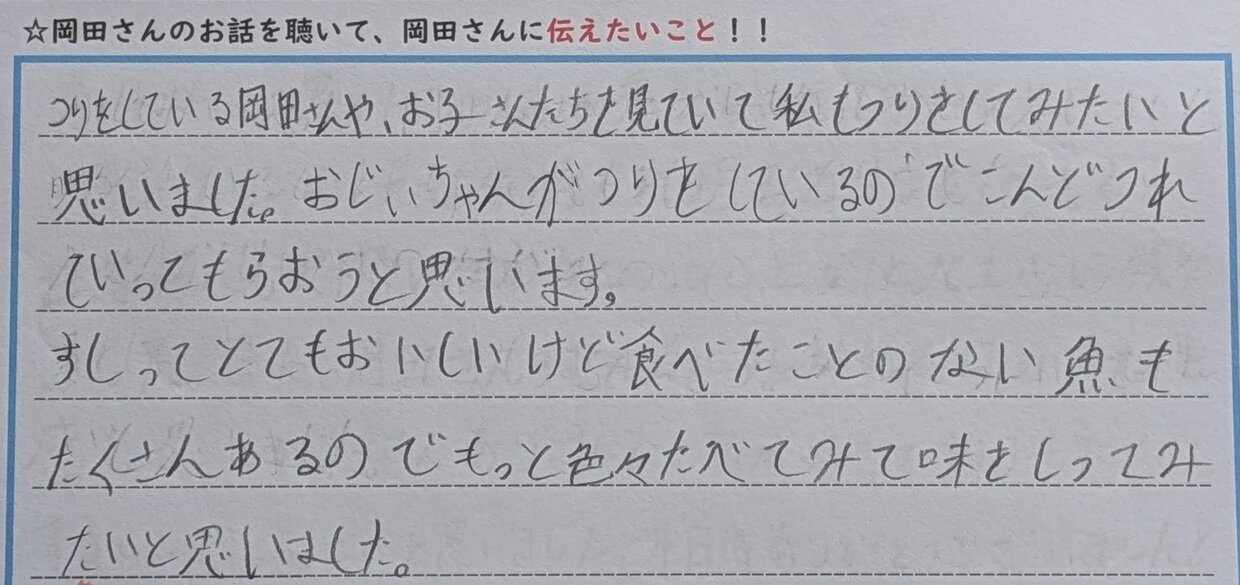 ☆岡田さんのお話を聴いて、岡田さんに伝えたいこと！！
つりをしている岡田さんや、お子さんたちを見ていて私もつりをしてみたいと
思いました。おじいちゃんがつりをしているのでこんどつれ
ていってもらおうと思います。
すしってとてもおいしいけど食べたことのない魚も
たくさんあるのでもっと色々たべてみて味をしってみ
たいと思いました。